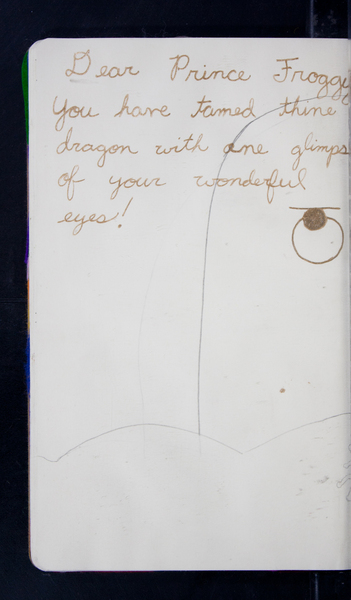 Dear Prince Froggy
You have tamed thine
dragon with one glimps
of your wonderful
eyes!